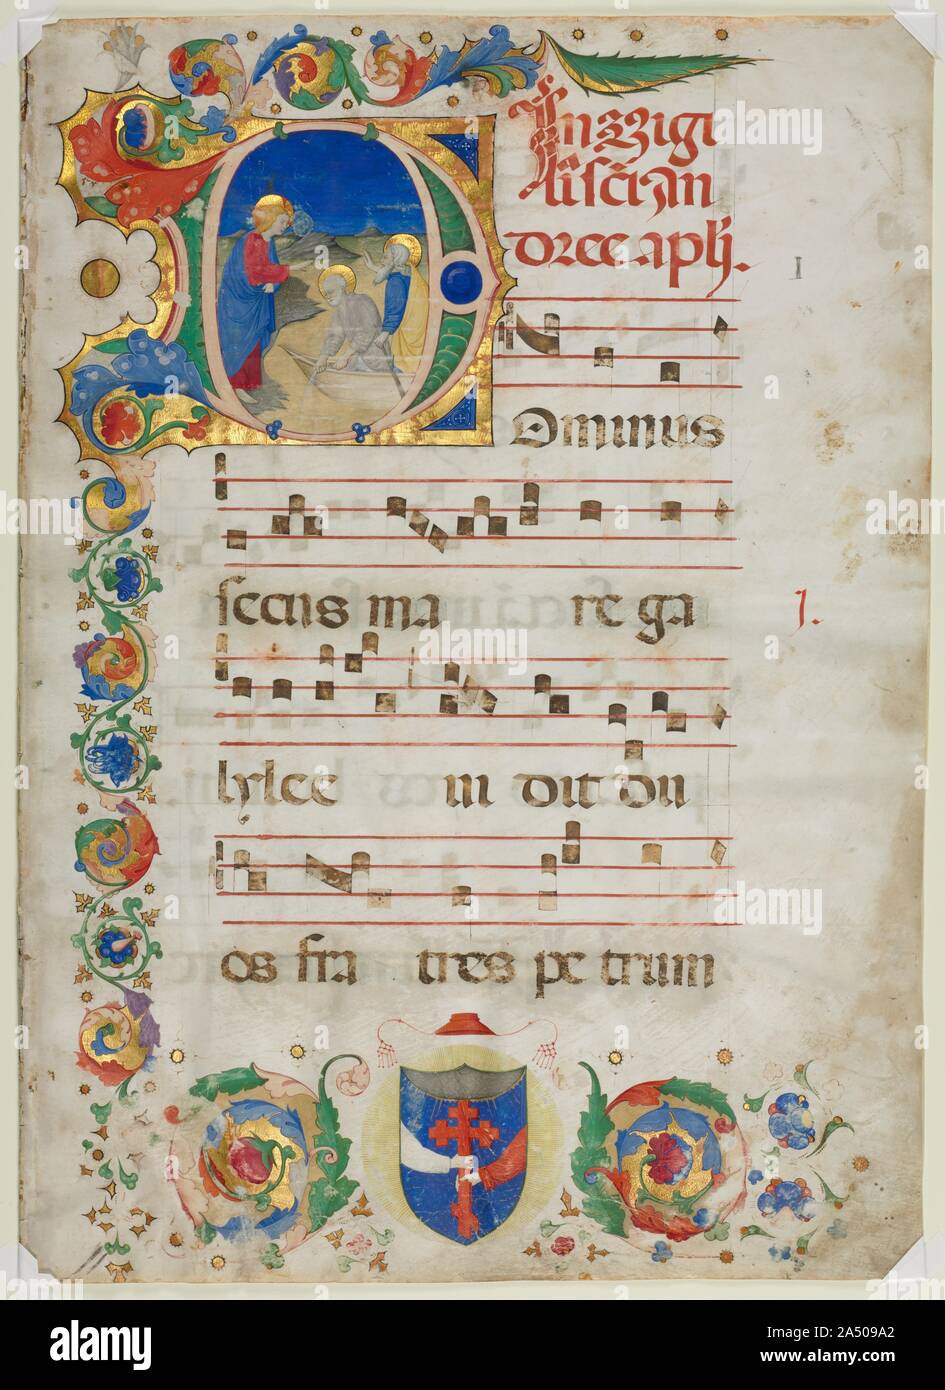 In vigi
lia sc̄i An
dree apl̄i.
I
Dominus
secus ma re ga
1.
lylee vi dit du
os fra tres pe trum
alamy
Image ID: 2A509A2
www.alamy.com